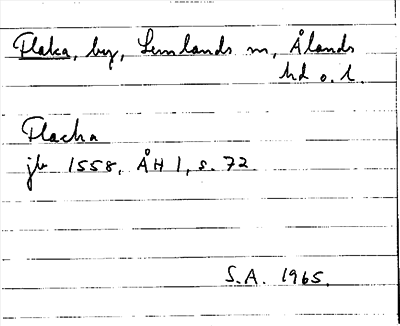 Flaka, by, Lemlands sn, Ålands
hd o. l.
Flacka
jb 1558, ÅH 1, s. 72
S.A. 1965.